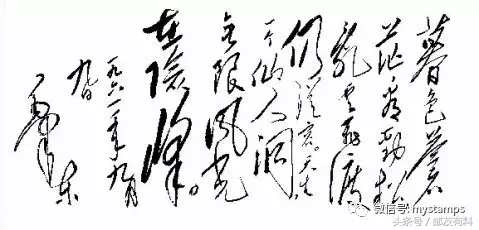 暮色蒼
茫看勁松
乱云飛渡
仍從容。天生
一个仙人洞
无限风光
在險峰。
一九六一年九月
九日
毛泽东
微信号: mystams
头条号 / 邮友有料